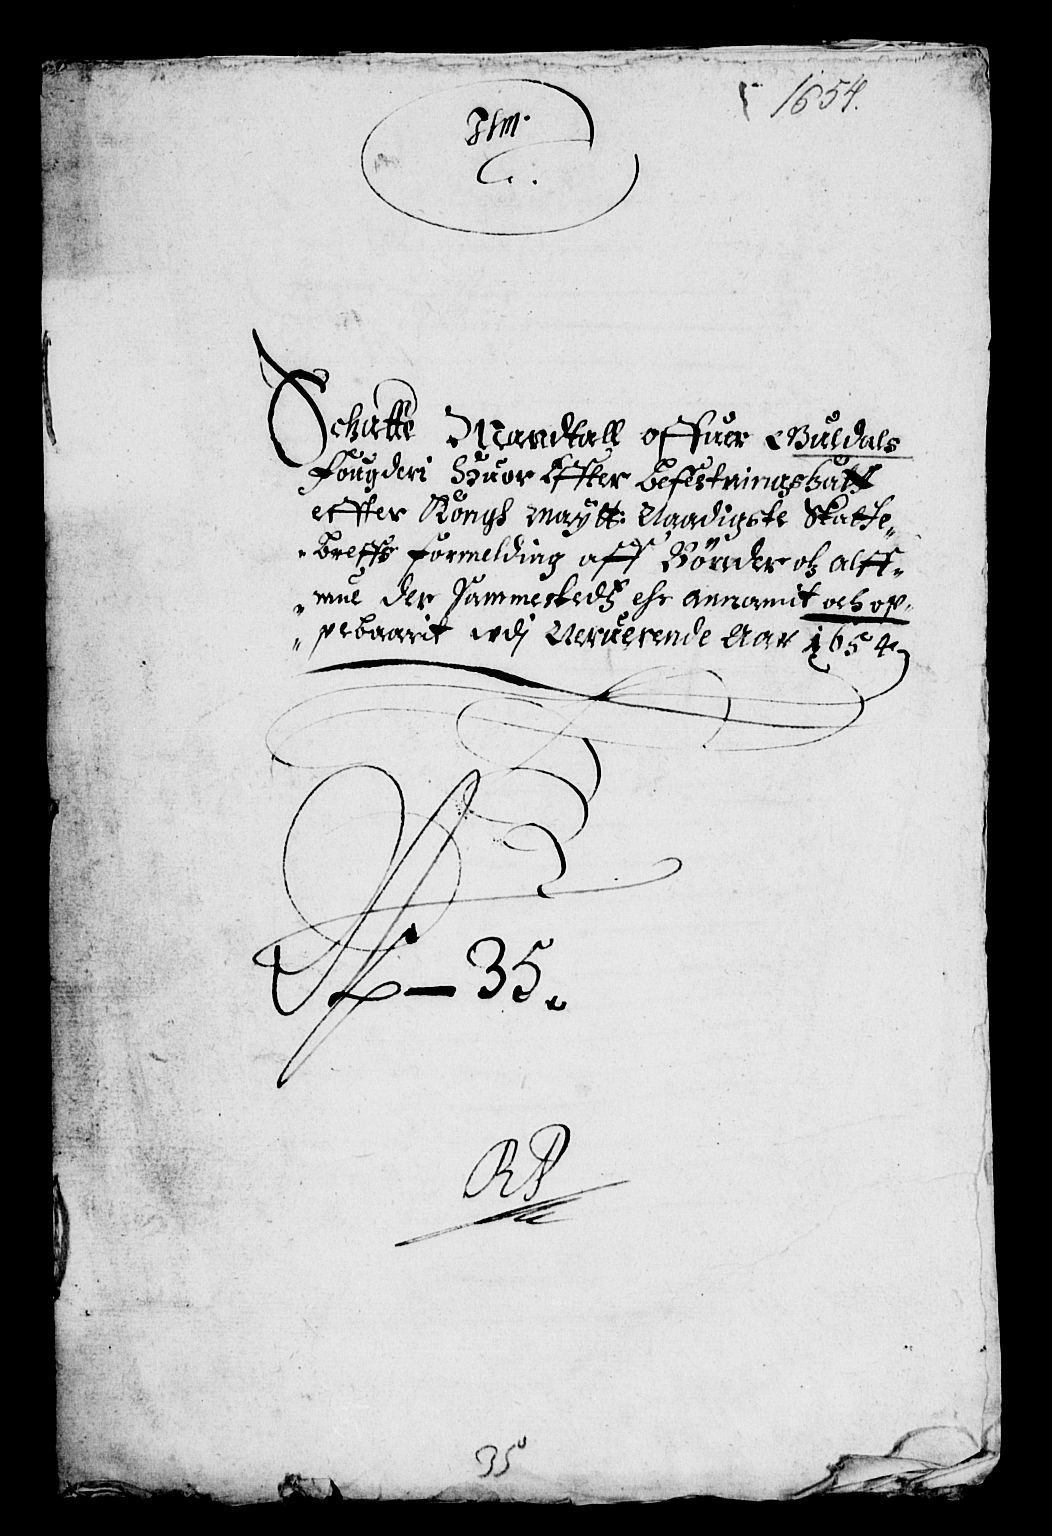 1654.
Schatte Mandtall offuer Guldals
fougderi Huor Effter befestningskatt
effter Kongl Maytt: Naadigste Skatte„
„breffs formelding aff Bönder och Alff„
„mue der sammesteds ehr annamit och op„
„pebaarit wdj Neruerende Aar 1654
35.
RP
35